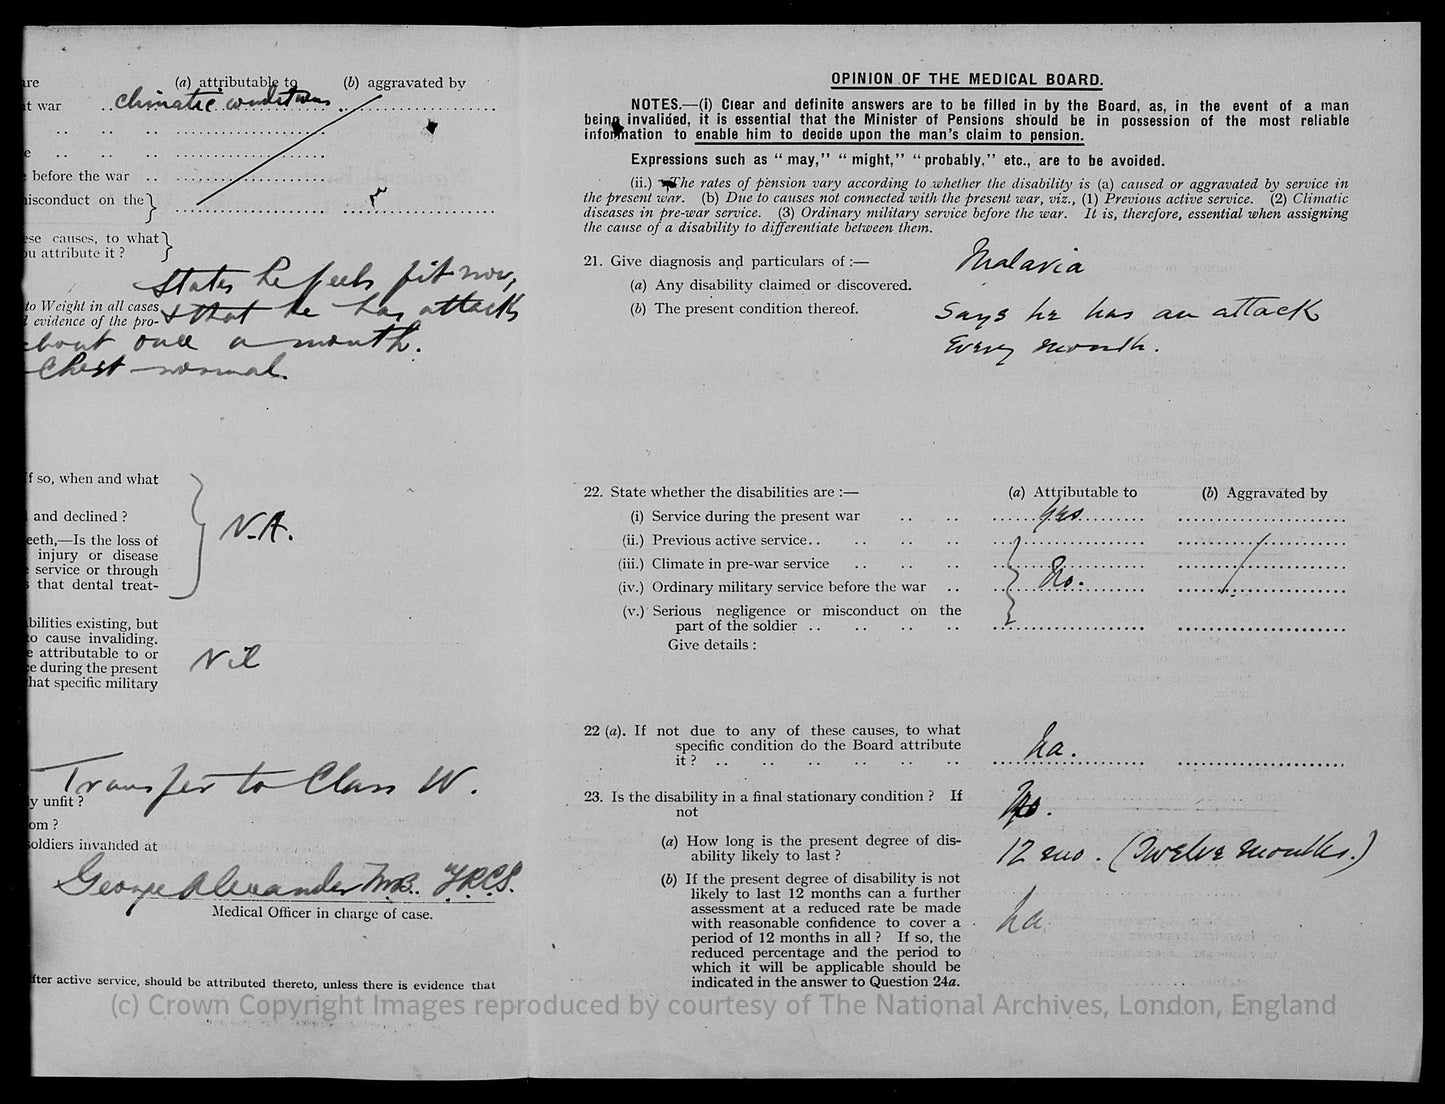 are (a) attributable to (b) aggravated by
t war climatic conditions
e
before the war
isconduct on the
se causes, to what
ou attribute it ?
States he feels fit now,
to Weight in all cases
evidence of the pro-
& that he has attacks
about once a month.
Chest normal.
f so, when and what
and declined ?
eeth,—Is the loss of
injury or disease
service or through
that dental treat-
N.A.
bilities existing, but
to cause invaliding.
e attributable to or
e during the present
hat specific military
Nil
Transfer to Class W.
y unfit ?
om ?
oldiers invalided at
George Alexander M.B. F.R.C.S.
Medical Officer in charge of case.
fter active service, should be attributed thereto, unless there is evidence that
OPINION OF THE MEDICAL BOARD.
NOTES.—(i) Clear and definite answers are to be filled in by the Board, as, in the event of a man
being invalided, it is essential that the Minister of Pensions should be in possession of the most reliable
information to enable him to decide upon the man's claim to pension.
Expressions such as "may," "might," "probably," etc., are to be avoided.
(ii.) —The rates of pension vary according to whether the disability is (a) caused or aggravated by service in
the present war. (b) Due to causes not connected with the present war, viz., (1) Previous active service. (2) Climatic
diseases in pre-war service. (3) Ordinary military service before the war. It is, therefore, essential when assigning
the cause of a disability to differentiate between them.
21. Give diagnosis and particulars of :— Malaria
(a) Any disability claimed or discovered.
(b) The present condition thereof. Says he has an attack
every month.
22. State whether the disabilities are :— (a) Attributable to (b) Aggravated by
(i) Service during the present war Yes
(ii.) Previous active service
(iii.) Climate in pre-war service
(iv.) Ordinary military service before the war No.
(v.) Serious negligence or misconduct on the
part of the soldier
Give details :
22 (a). If not due to any of these causes, to what
specific condition do the Board attribute
it ? na.
23. Is the disability in a final stationary condition ? If
not No.
(a) How long is the present degree of dis-
ability likely to last ? 12 mo. (Twelve months.)
(b) If the present degree of disability is not
likely to last 12 months can a further
assessment at a reduced rate be made
with reasonable confidence to cover a
period of 12 months in all ? If so, the
reduced percentage and the period to
which it will be applicable should be
indicated in the answer to Question 24a.
na
(c) Crown Copyright Images reproduced by courtesy of The National Archives, London, England